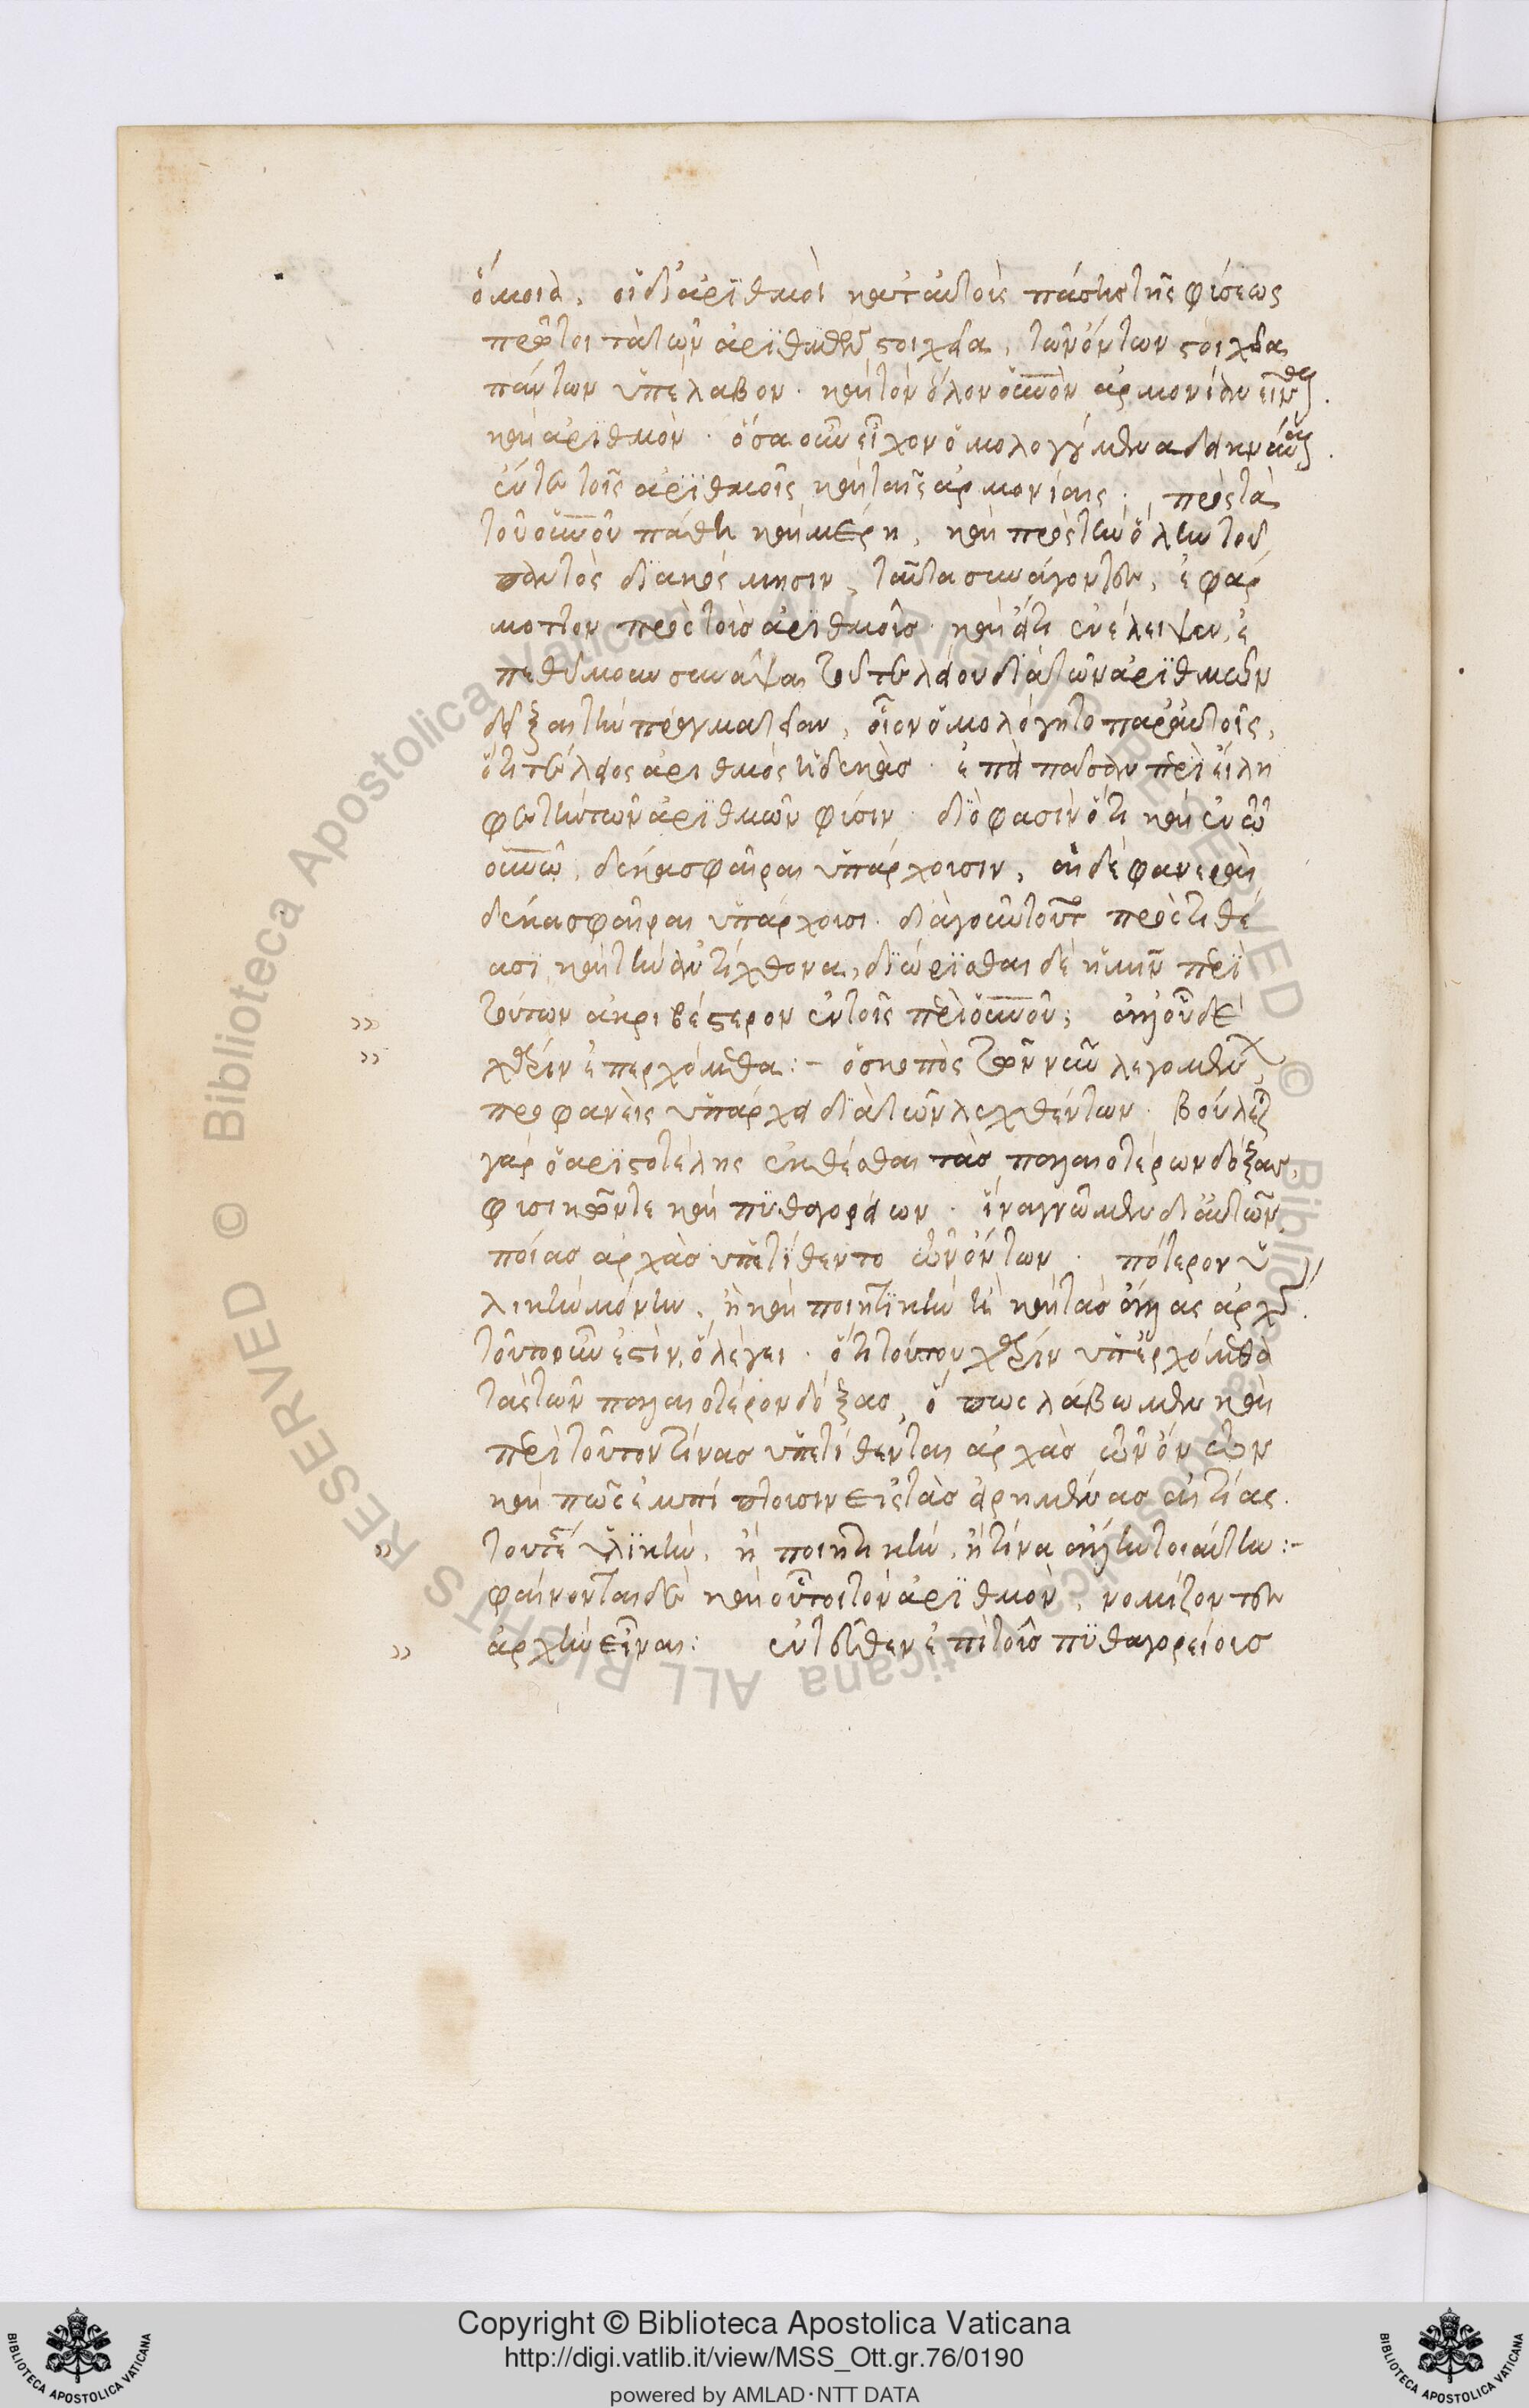 ὅμοια, οἱ δὲ ἀριθμοὶ κατ' αὐτοῖς πάσης τῆς φύσεως
πρῶτοι τὰ τῶν ἀριθμῶν στοιχεῖα, τῶν ὄντων στοιχεῖα
πάντων ὑπέλαβον. καὶ τὸν ὅλον οὐνὸν ἁρμονίαν εἶναι
καὶ ἀριθμόν. ὅσα οὖν εἶχον ὁμολογούμενα δεικνύναι
ἔν τε τοῖς ἀριθμοῖς καὶ ταῖς ἁρμονίαις. πρὸς τὰ
τοῦ οὐνοῦ πάθη καὶ μέρη, καὶ πρὸς τὴν ὅλην τοῦ
παντὸς διακόσμησιν, ταῦτα συνάγοντες, ἐφαρ
μοττον πρὸς τοῖς ἀριθμοῖς. καὶ ἔτι ἐνέλειψεν, ἐ
πεθύμουν συνάψαι
δεῖξαι τὴν πραγματείαν, οἷον ὁμολόγητο παρ' αὐτοῖς,
ὅτι τέλειος ἀριθμὸς ἡ δεκάς. ἐπεὶ πᾶσαν περιείλη
φε τὴν τῶν ἀριθμῶν φύσιν. διό φασιν ὅτι καὶ ἐν τῷ
οὐνῷ, δέκα σφαῖραι ὑπάρχουσιν, αἱ δὲ φανεραὶ
δέκα σφαῖραι ὑπάρχουσι. διὰ γοῦν τοῦτο προστιθέ
ασι καὶ τὴν ἀντίχθονα, διώρισθαι δὲ ἡμῖν περὶ
τούτων ἀκριβέστερον ἐν τοῖς περὶ οὐνοῦ; ἀλλ' οὗ δὲ
χάριν ἐπερχόμεθα:- ὁ σκοπὸς τῶν νῦν λεγομένων
προφανεὶς ὑπάρχει διὰ τῶν λεχθέντων. βούλεται
γὰρ ὁ ἀριστοτέλης ἐκθέσθαι τὰς παλαιοτέρων δόξας,
φυσικῶν τε καὶ πυθαγορείων. ἵνα γνῶμεν δι' αὐτῶν
ποίας ἀρχὰς ὑπετίθεντο τῶν ὄντων. πότερον ὑ
λικὴν μόνην, ἢ καὶ ποιητικήν τε καὶ τὰς ἄλλας ἀρχάς.
τοῦτο οὖν ἐστὶν, ὃ λέγει. ὅτι τούτου χάριν ὑπερχόμεθα
τὰς τῶν παλαιοτέρον δόξας, ὅπως λάβωμεν καὶ
περὶ τοῦτον τίνας ὑπετίθενται ἀρχὰς τῶν ὄντων
καὶ πῶς ἐμπίπτουσιν εἰς τὰς εἰρημένας αἰτίας.
τουτέστι ὑλικὴν, ἢ ποιητικὴν, ἤ τινα ἄλλην τοιαύτην:-
φαίνονται δὲ καὶ οὗτοι τὸν ἀριθμὸν, νομίζοντες
ἀρχὴν εἶναι: ἐντεῦθεν ἐπὶ τοῖς πυθαγορείοις
Copyright © Biblioteca Apostolica Vaticana
http://digi.vatlib.it/view/MSS_Ott.gr.76/0190
powered by AMLAD·NTT DATA